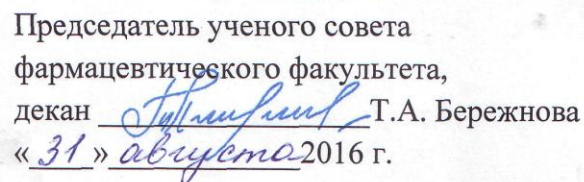 Председатель ученого совета
фармацевтического факультета,
декан Т.А. Бережнова
«31» августа 2016 г.